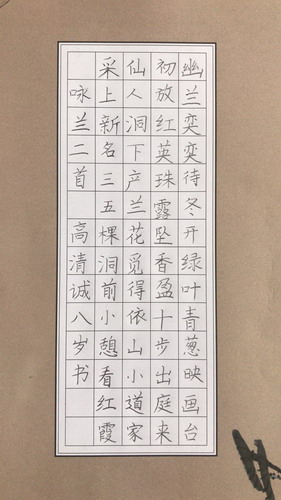 幽兰奕奕待冬开绿叶青葱映画台
初放红英珠露坠香盈十步出庭来
仙人洞下产兰花觅得依山小道家
采上新名三五棵洞前小憩看红霞
咏兰二首 高清诚八岁书